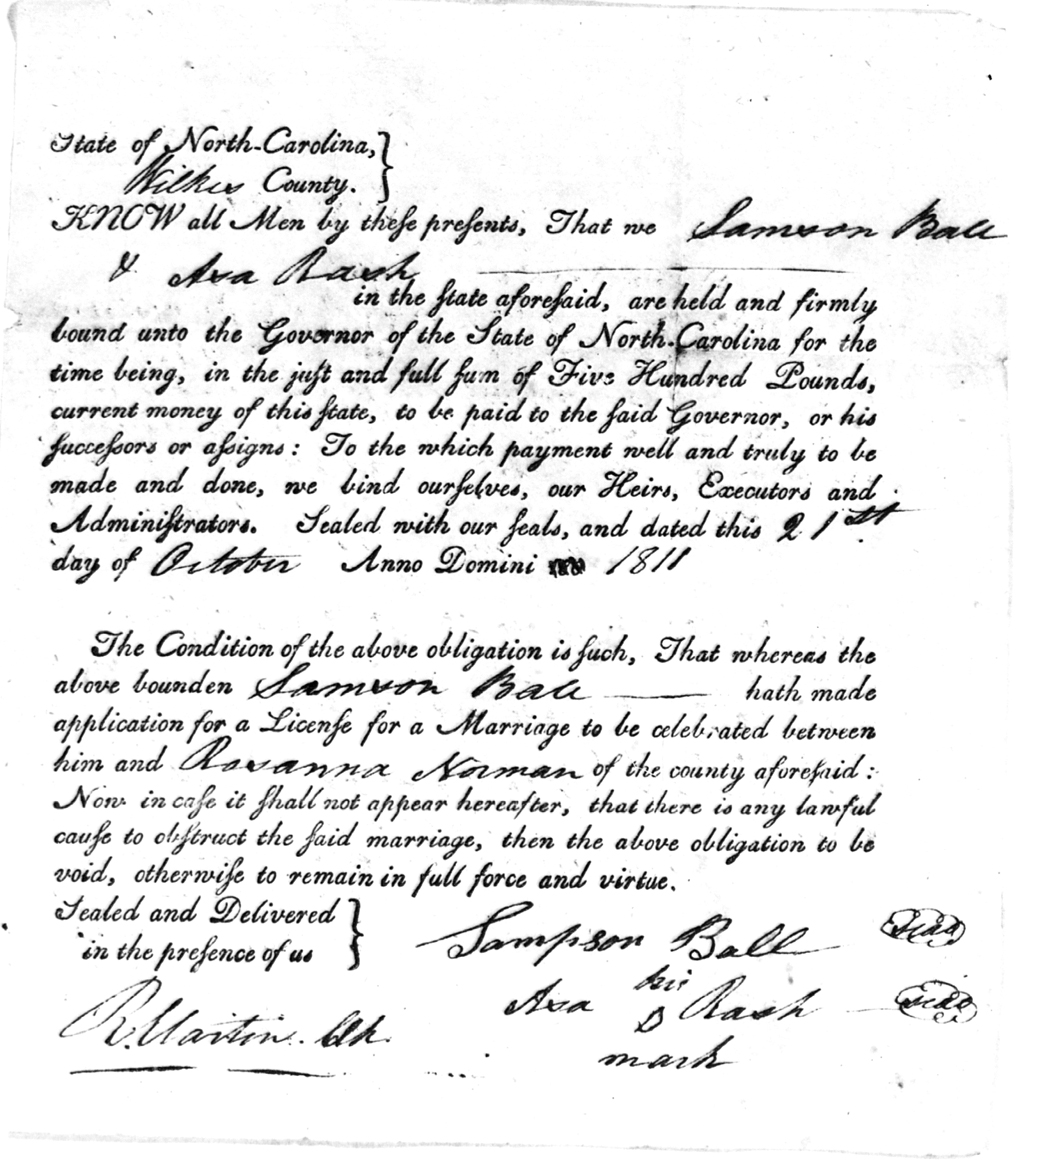 State of North-Carolina,
Wilkes County.
KNOW all Men by theſe preſents, That we Samson Ball
& Asa Rash
in the ſtate aforeſaid, are held and firmly
bound unto the Governor of the State of North-Carolina for the
time being, in the juſt and full ſum of Five Hundred Pounds,
current money of this ſtate, to be paid to the ſaid Governor, or his
ſucceſſors or aſsigns: To the which payment well and truly to be
made and done, we bind ourſelves, our Heirs, Executors and
Adminiſtrators. Sealed with our ſeals, and dated this 21st
day of October Anno Domini 1811
The Condition of the above obligation is ſuch, That whereas the
above bounden Samson Ball hath made
application for a Licenſe for a Marriage to be celebrated between
him and Rosanna Norman of the county aforeſaid:
Now in caſe it ſhall not appear hereafter, that there is any lawful
cauſe to obſtruct the ſaid marriage, then the above obligation to be
void, otherwiſe to remain in full force and virtue.
Sealed and Delivered
in the preſence of us
Sampson Ball seal
his
Asa Rash seal
mark
R. Martin. Clk.